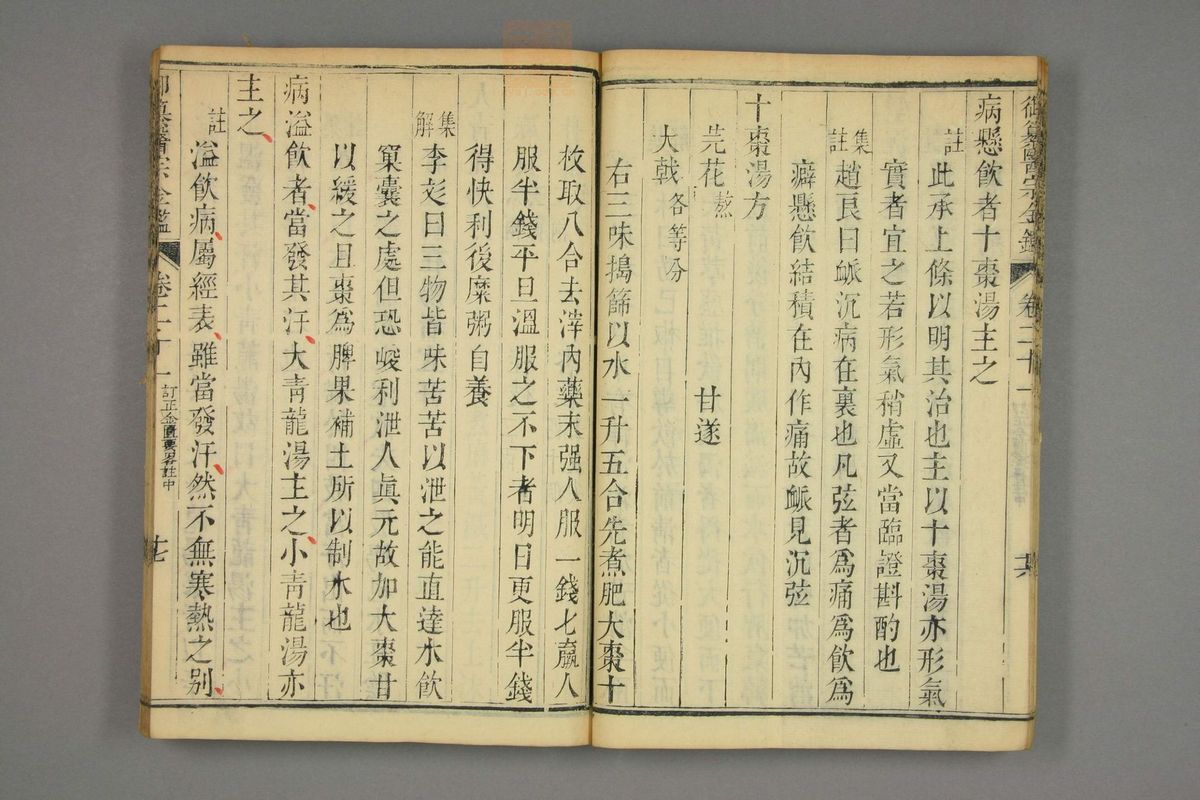 御纂醫宗金鑑 卷二十一
病懸飲者十棗湯主之
註 此承上條以明其治也主以十棗湯亦形氣
實者宜之若形氣稍虛又當臨證斟酌也
集註 趙良曰脈沉病在裏也凡弦者爲痛爲飲爲
癖懸飲結積在內作痛故脈見沉弦
十棗湯方
芫花熬 甘遂
大戟各等分
右三味搗篩以水一升五合先煮肥大棗十
枚取八合去滓內藥末强人服一錢匕羸人
服半錢平旦溫服之不下者明日更服半錢
得快利後糜粥自養
集解 李彣曰三物皆味苦苦以泄之能直達水飲
窠囊之處但恐峻利泄人眞元故加大棗甘
以緩之且棗爲脾果補土所以制水也
病溢飲者當發其汗大青龍湯主之小青龍湯亦
主之
註 溢飲病屬經表雖當發汗然不無寒熱之別
醫宗金鑑 卷二十一 訂正金匱要畧註中 十七